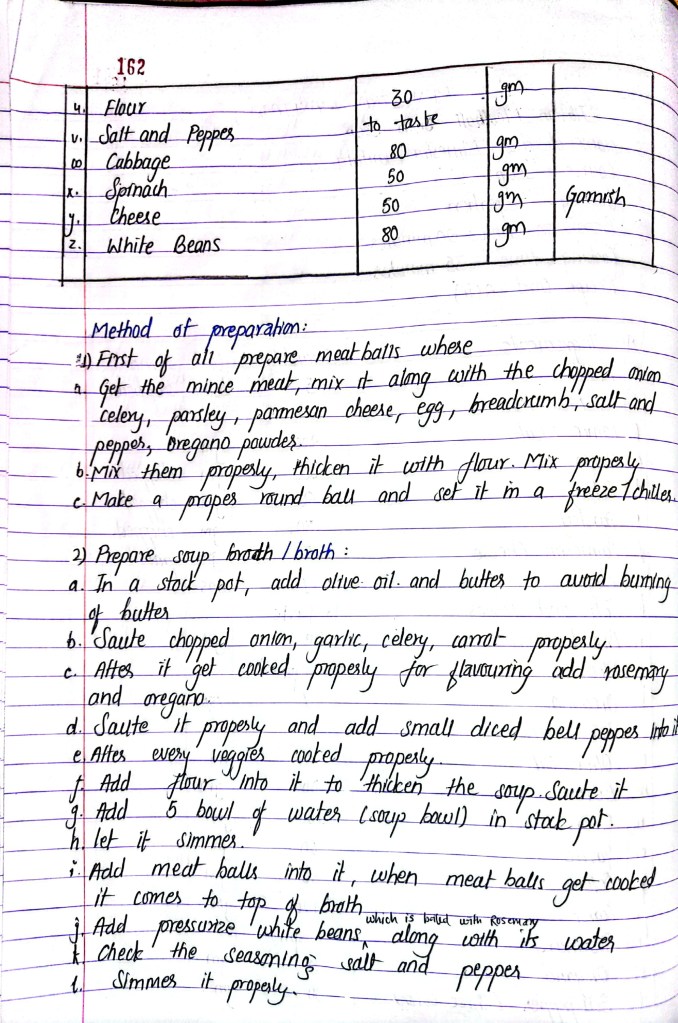 162
u. Flour 30 gm
v. Salt and Pepper to taste
w Cabbage 80 gm
x. Spinach 50 gm
y. Cheese 50 gm Garnish
z. White Beans 80 gm
Method of preparation:
1) First of all prepare meat balls where
a. Get the mince meat, mix it along with the chopped onion
celery, parsley, parmesan cheese, egg, breadcrumb, salt and
pepper, oregano powder.
b. Mix them properly, thicken it with flour. Mix properly
c. Make a proper round ball and set it in a freeze / chiller.
2) Prepare soup broth / broth :
a. In a stock pot, add olive oil. and butter to avoid burning
of butter
b. Saute chopped onion, garlic, celery, carrot properly.
c. After it get cooked properly for flavouring add rosemary
and oregano.
d. Saute it properly and add small diced bell pepper into it
e. After every veggies cooked properly.
f. Add flour into it to thicken the soup. Saute it
g. Add 5 bowl of water (soup bowl) in stock pot.
h. let it simmer.
i. Add meat balls into it, when meat balls get cooked
it comes to top of broth
which is boiled with Rosemary
j. Add pressurize white beans, along with its water
k Check the seasoning; salt and pepper
l. Simmer it properly.